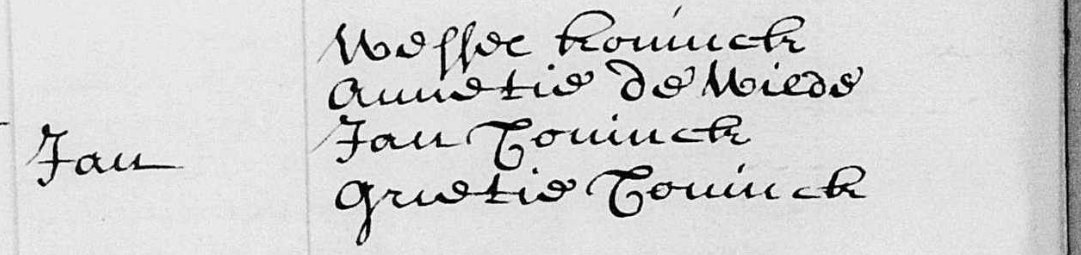 Wessel koninck
Annetie de Wilde
Jan Coninck
Jan
Grietie Coninck